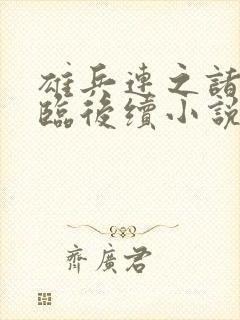 雄兵連之諸
臨後續小說
齊廣君